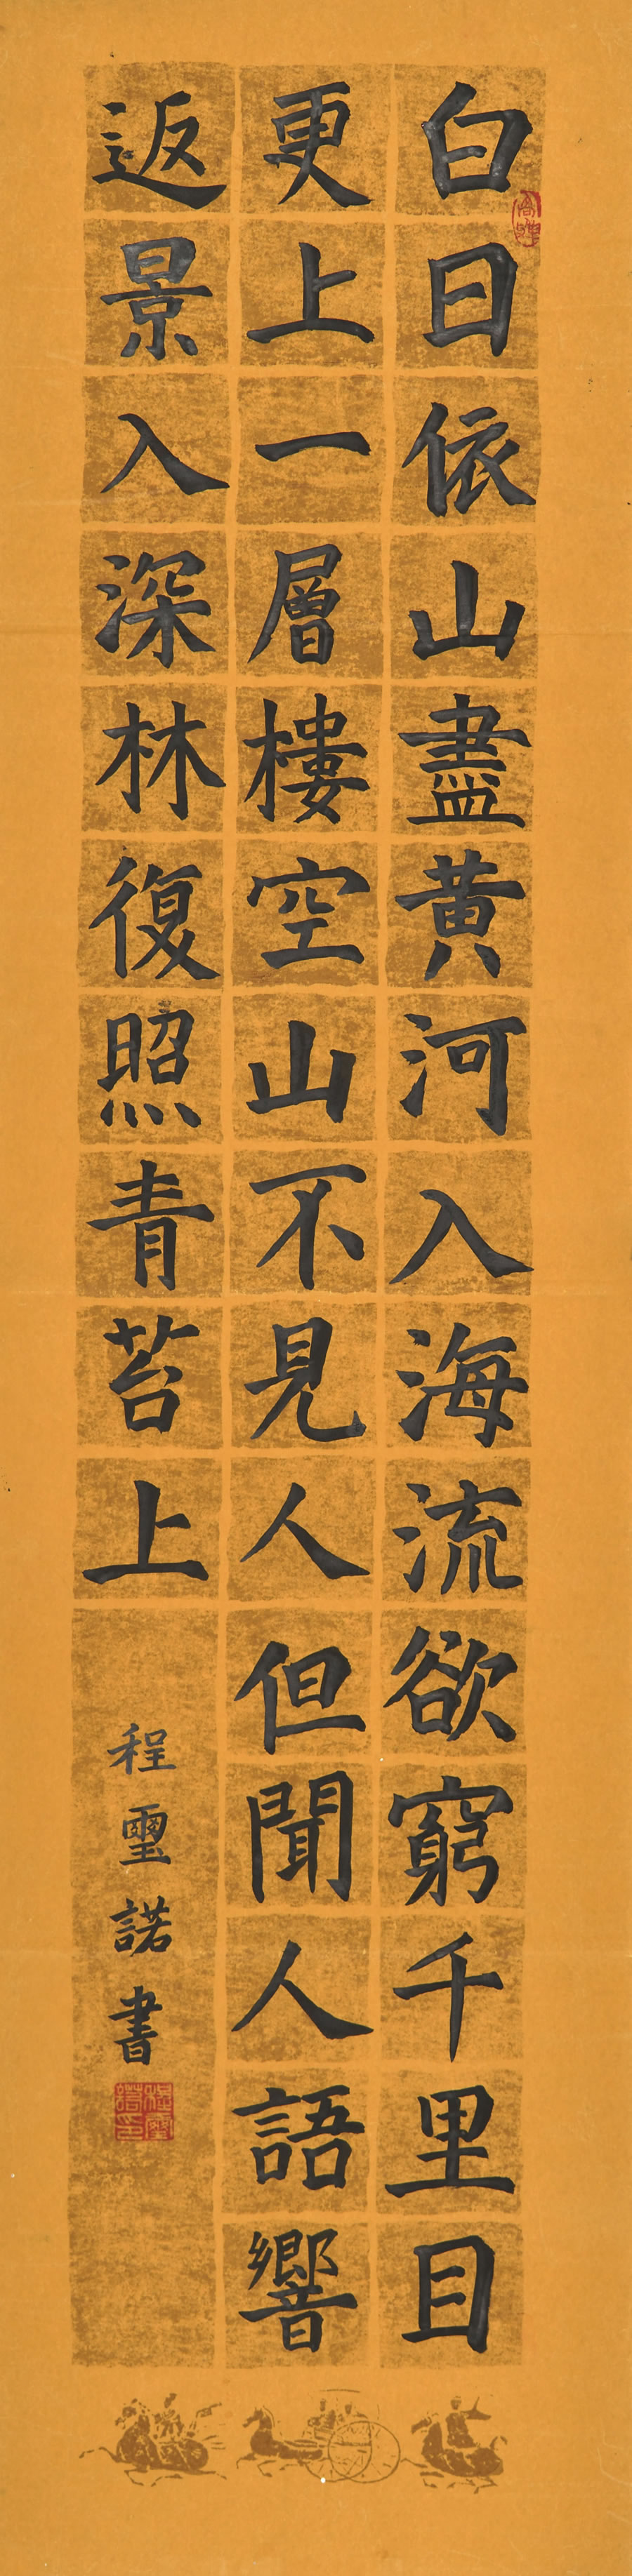 白日依山盡黄河入海流欲窮千里目
更上一層樓空山不見人但聞人語響
返景入深林復照青苔上
程璽諾書
程璽諾印